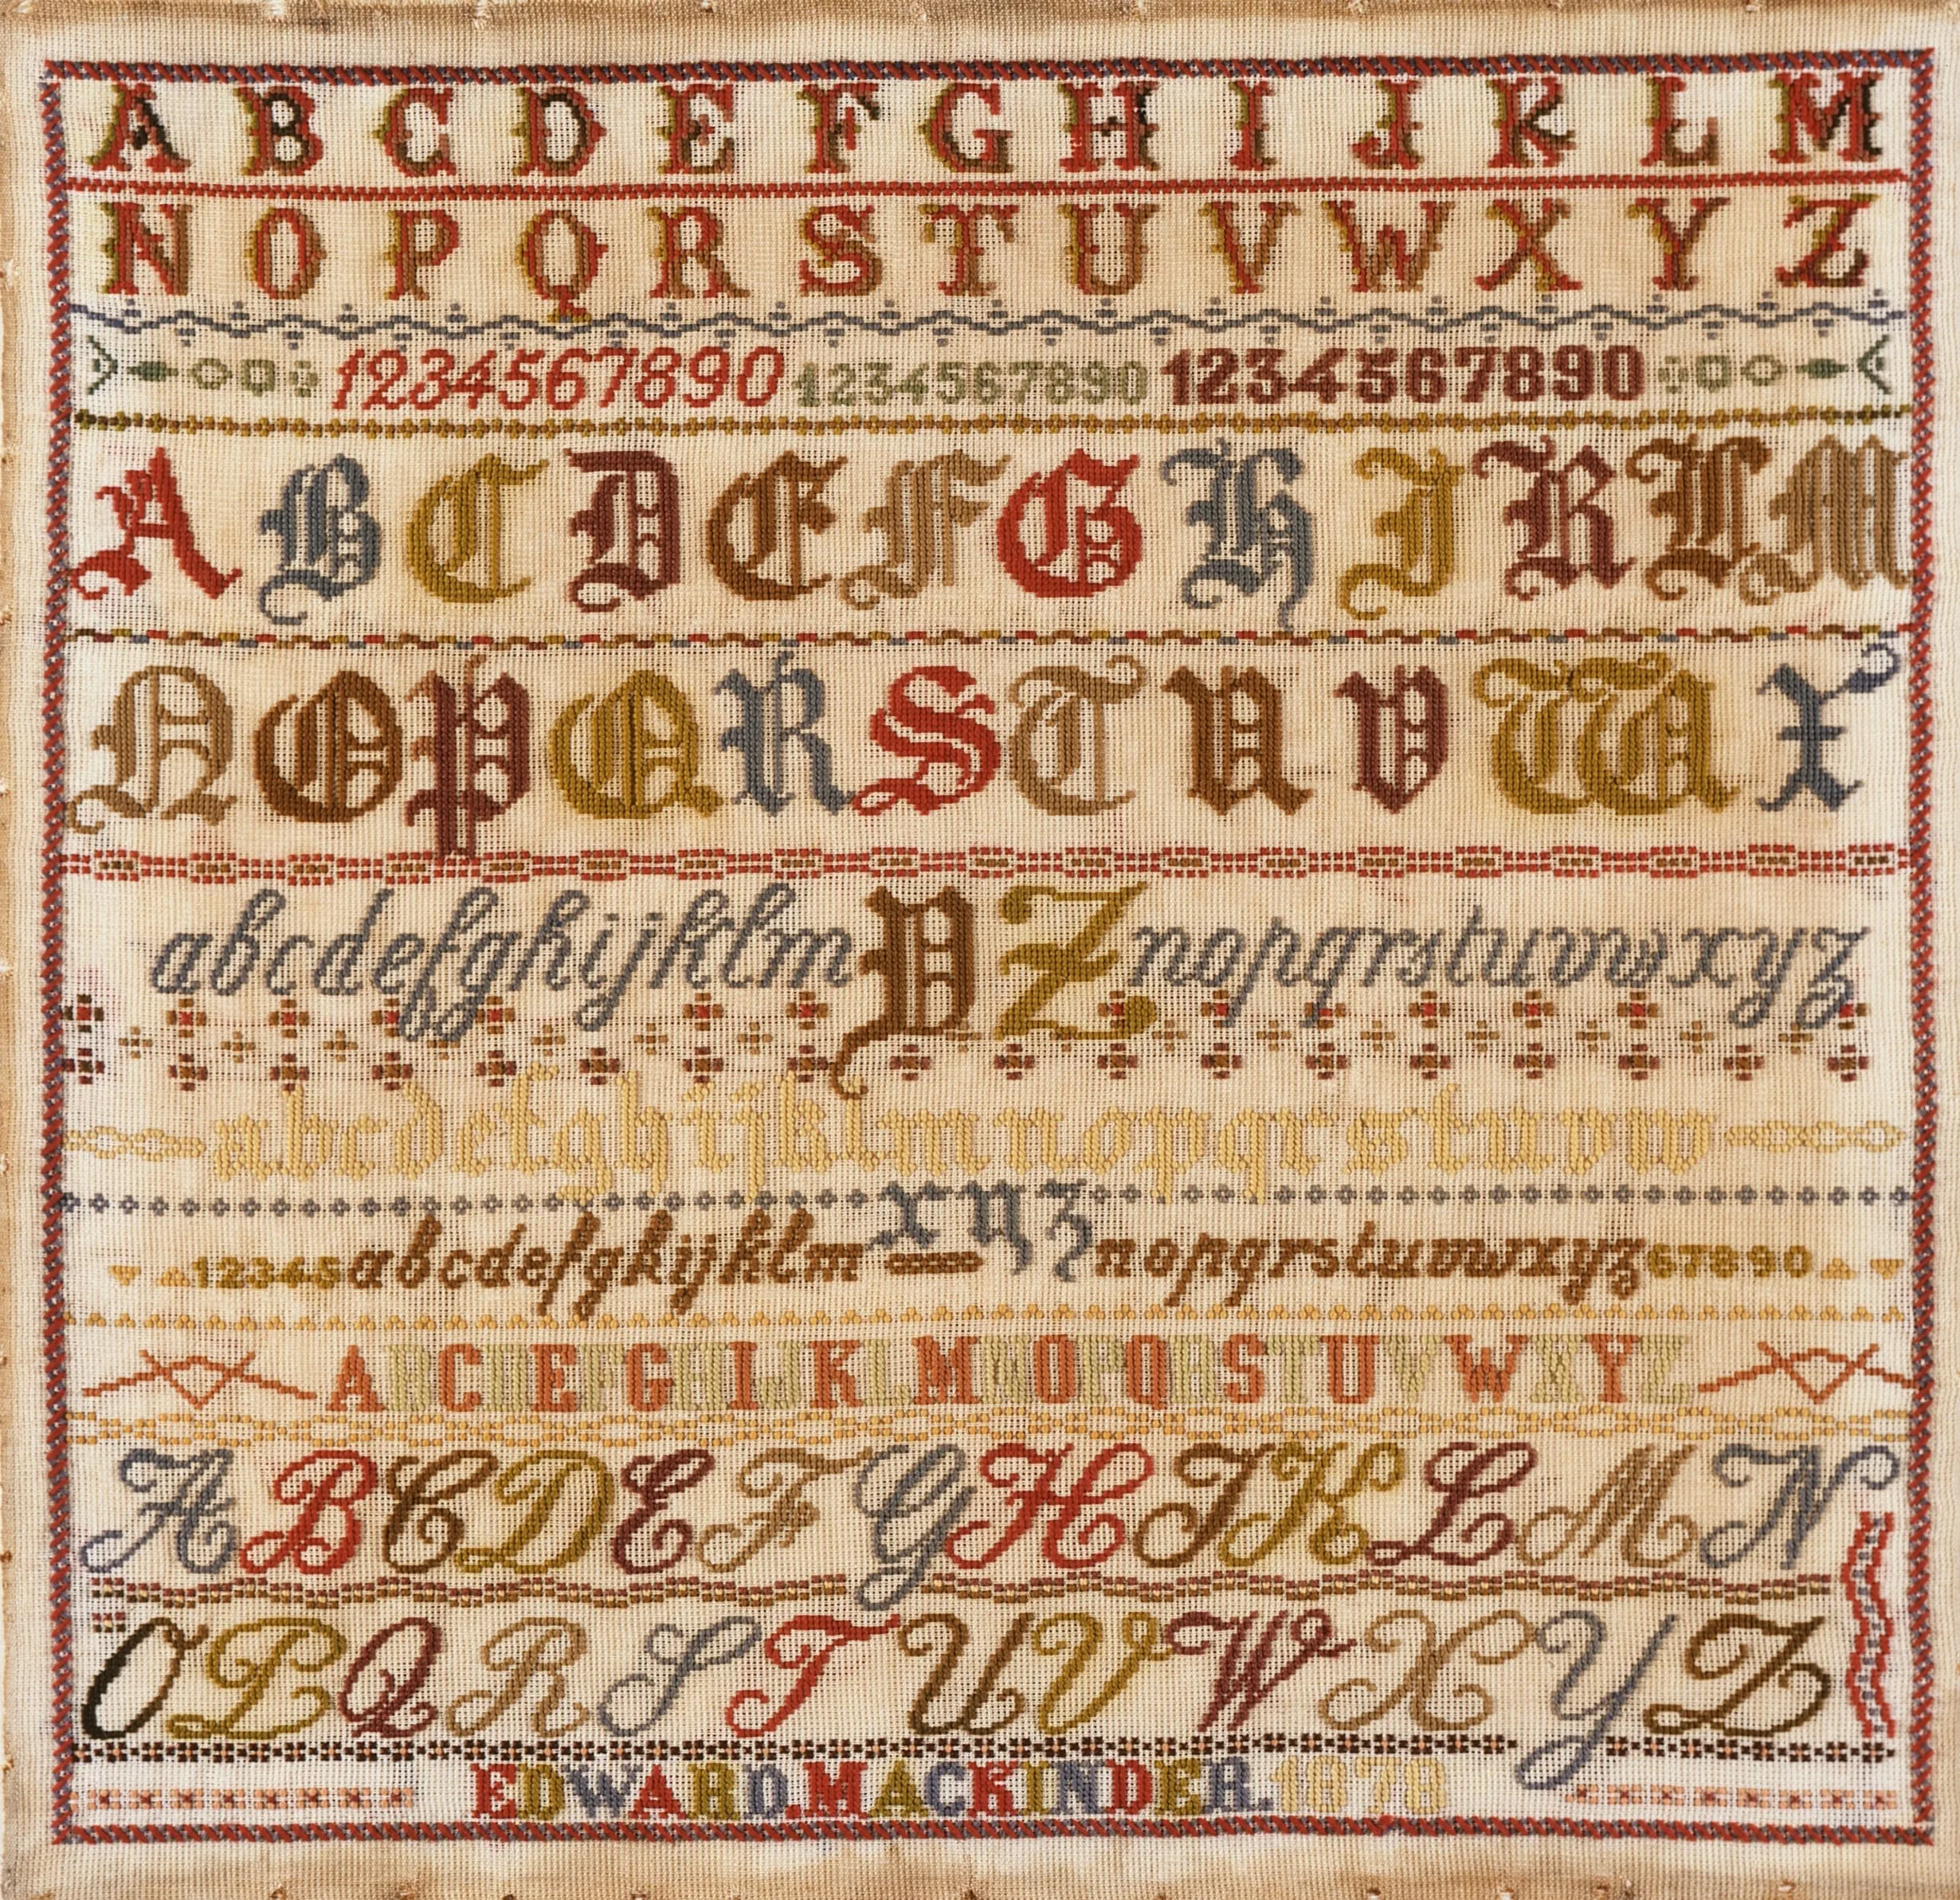 A B C D E F G H I J K L M
N O P Q R S T U V W X Y Z
1234567890 1234567890 1234567890
A B C D E F G H I K L M
N O P Q R S T U V W X
abcdefghijklm Y Z nopqrstuvwxyz
abcdefghijklmnopqrstuvw
x y z
12345 abcdefghijklm nopqrstuvwxyz 67890
ABCDEFGHIJKLMNOPQRSTUVWXYZ
A B C D E F G H I K L M N
O P Q R S T U V W X Y Z
EDWARD.MACKINDER.1878